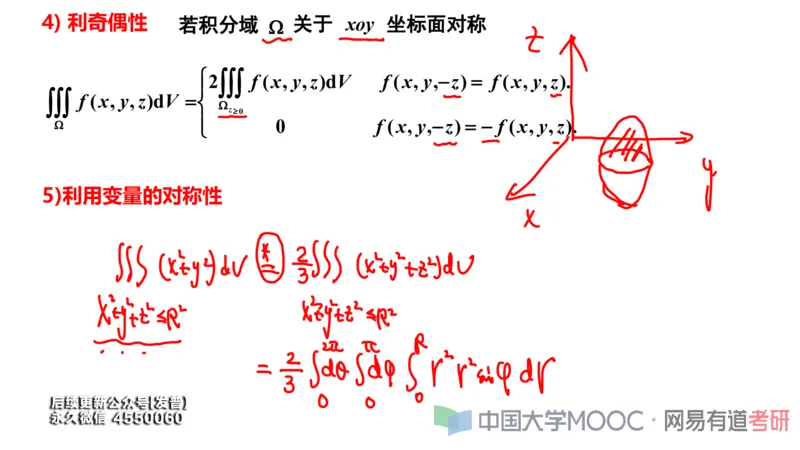 4) 利奇偶性 若积分域 Ω 关于 xoy 坐标面对称
∭_Ω f(x, y, z)dV = { 2∭_{Ω_{z≥0}} f(x, y, z)dV f(x, y,−z) = f(x, y, z).
0 f(x, y,−z) = − f(x, y, z).
z
y
x
5)利用变量的对称性
∭ (x²+y²)dV (*)= 2/3 ∭ (x²+y²+z²)dV
x²+y²+z²≤R² x²+y²+z²≤R²
= 2/3 ∫₀^{2π} dθ ∫₀^{π} dφ ∫₀^{R} r² r² sinφ dr
后续更新公众号[发普]
永久微信 4550060
中国大学MOOC · 网易有道考研